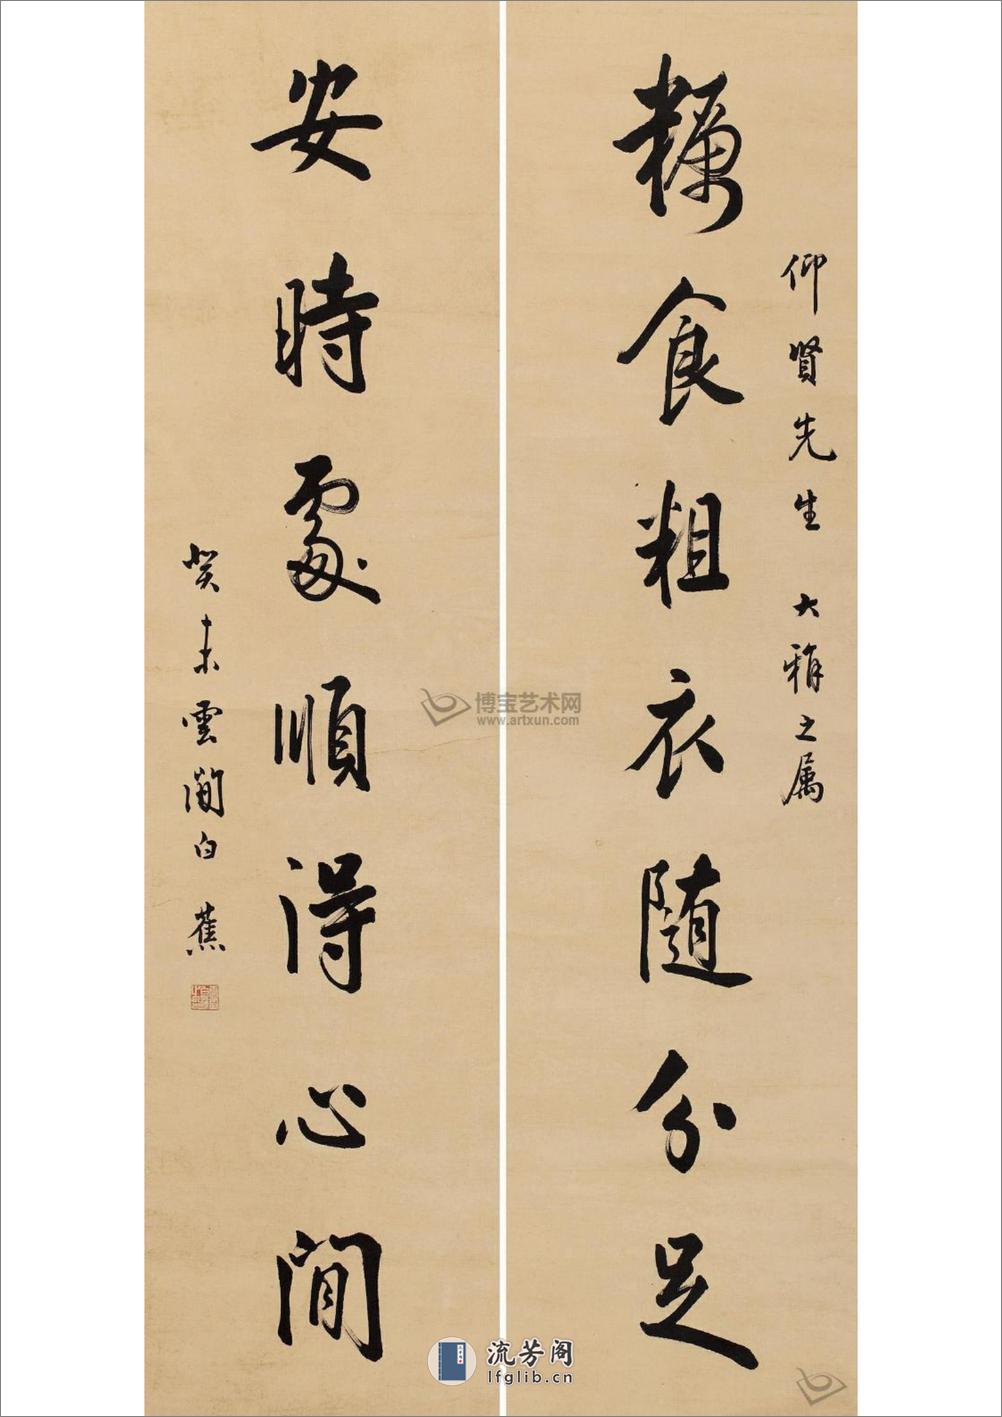 仰贤先生 大雅之属
糲食粗衣随分足
安時處順得心閒
癸未雲間白蕉
博宝艺术网
www.artxun.com
流芳阁
lfglib.cn